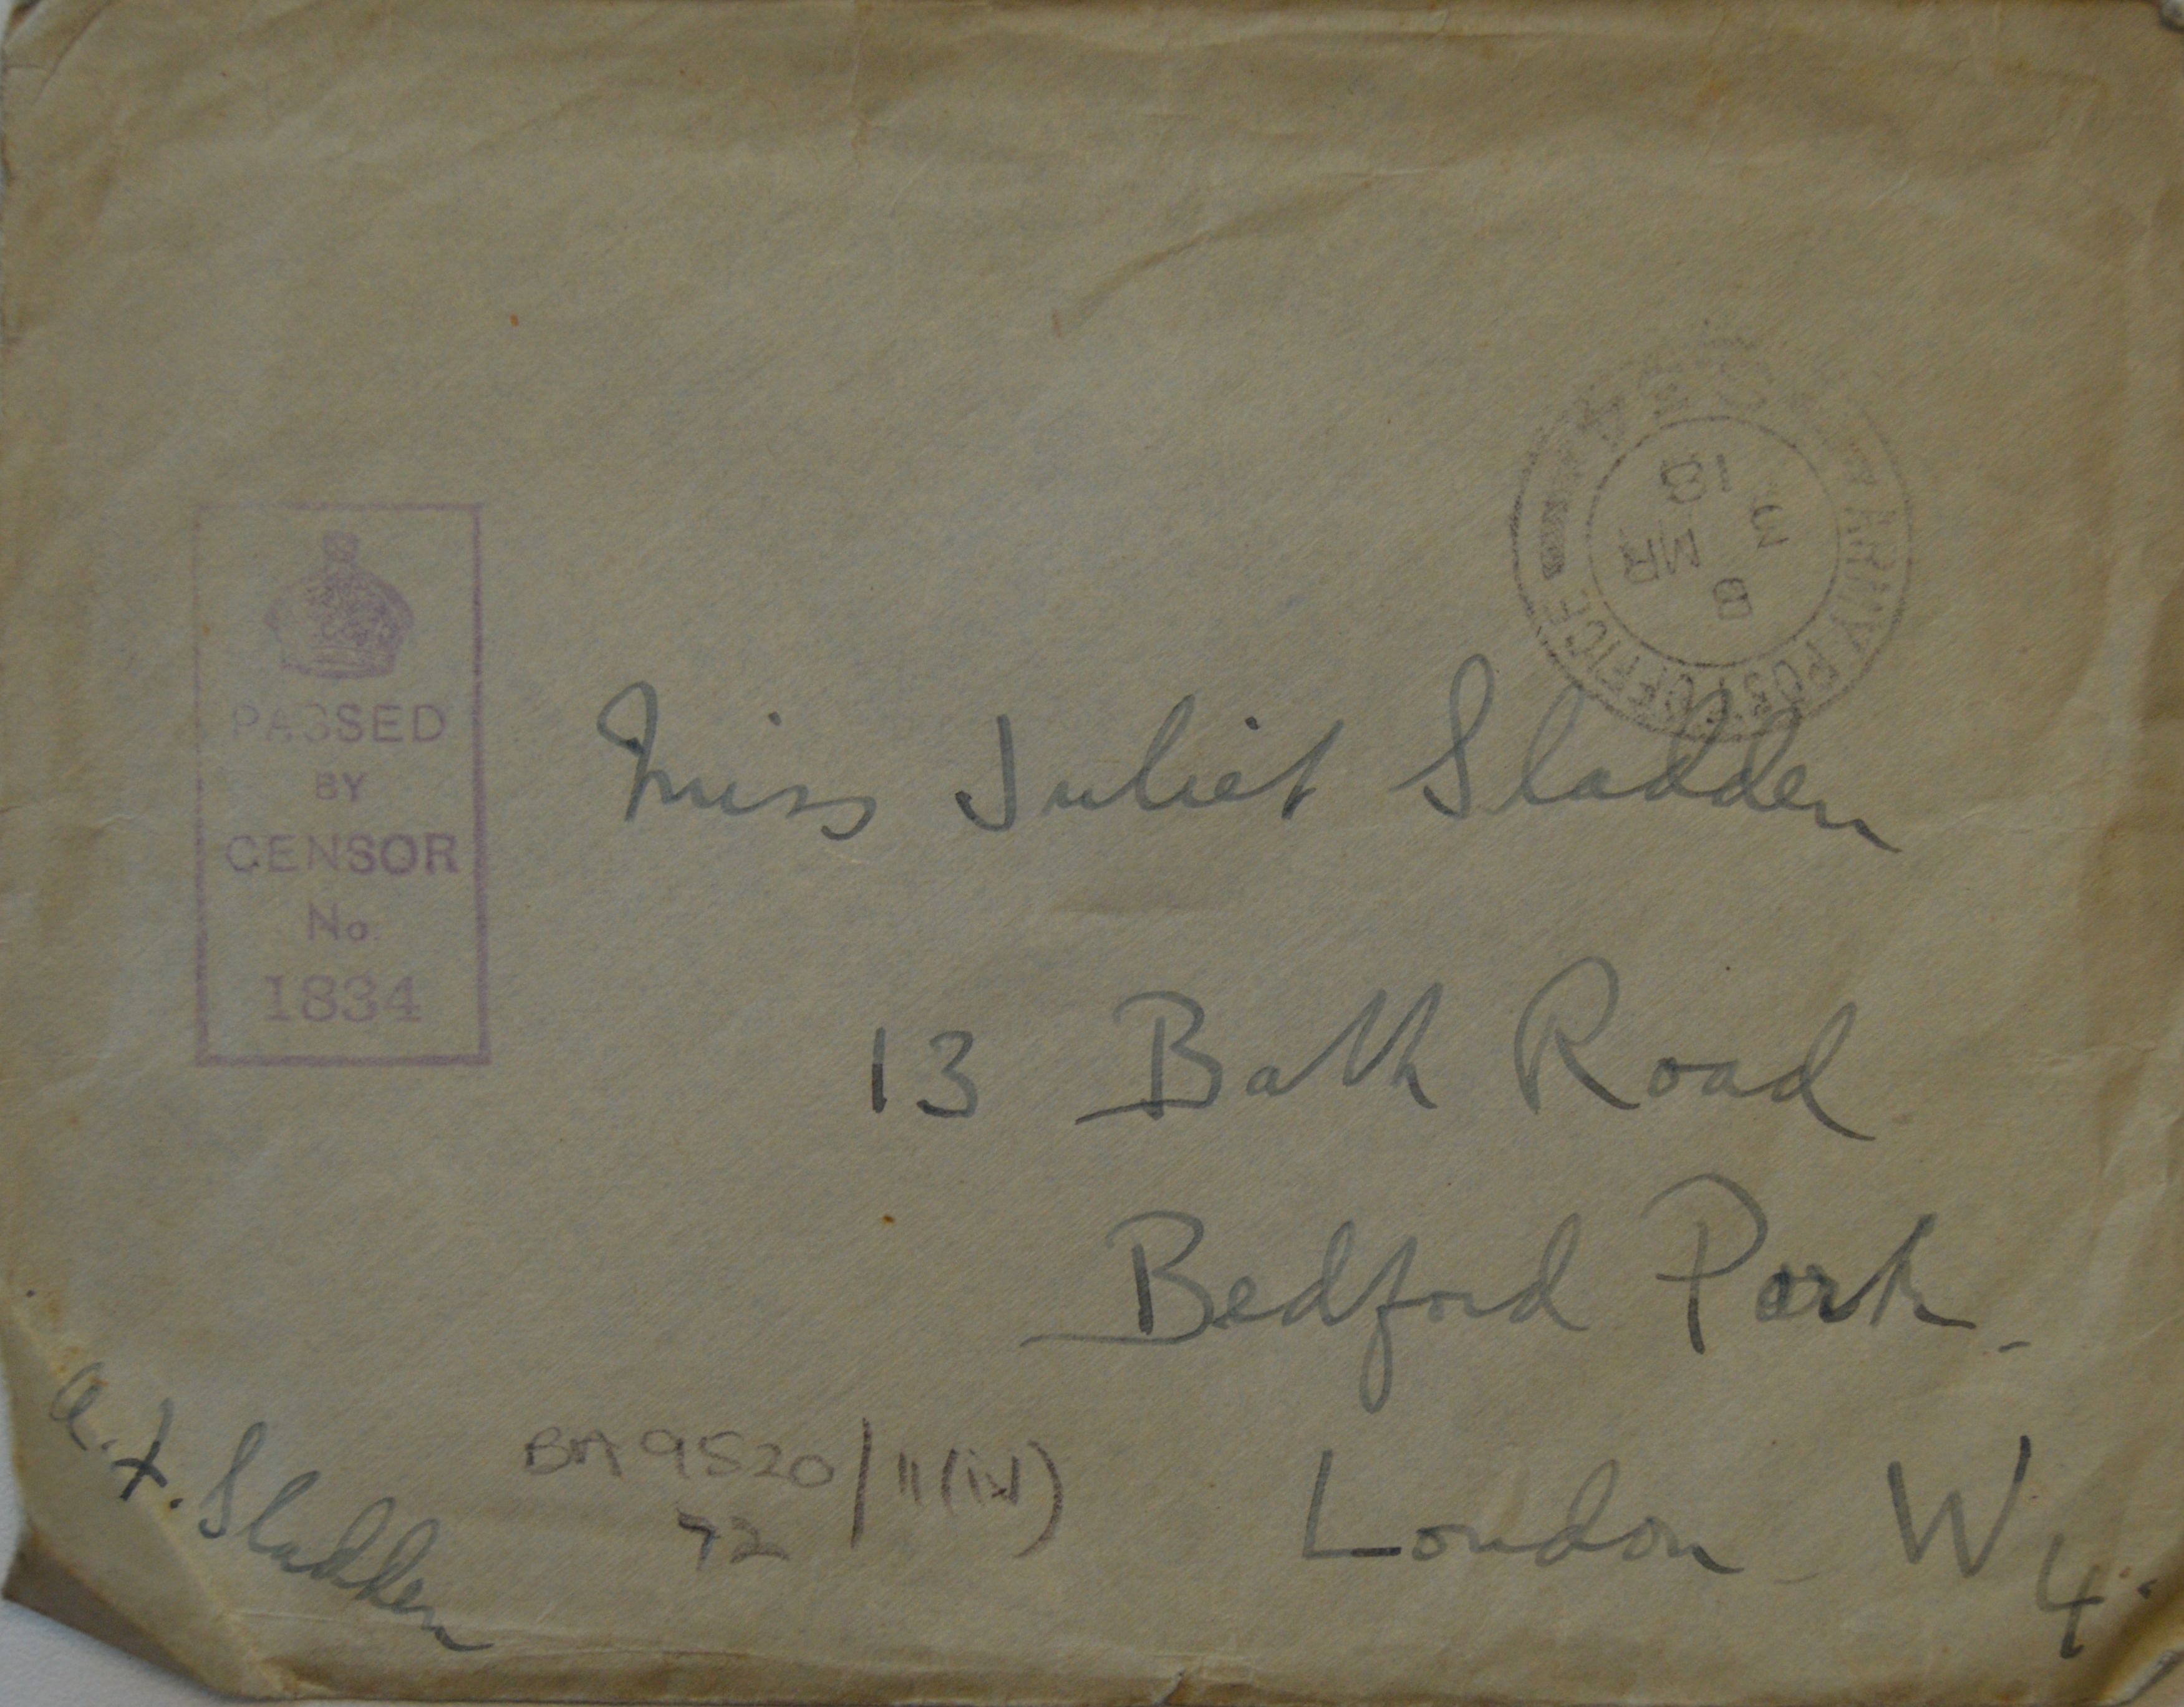 ARMY POST OFFICE
8
MR
18
PASSED
BY
CENSOR
No
1834
Miss Juliet Sladden
13 Bath Road
Bedford Park.
London W4.
a.F. Sladden
BA9520/11(iv)
72